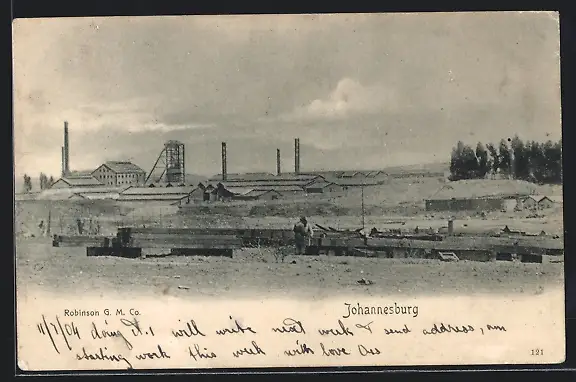 Robinson G. M. Co.
Johannesburg
11/7/04 doing A.1 will write next week & send address, am
starting work this week with love
121